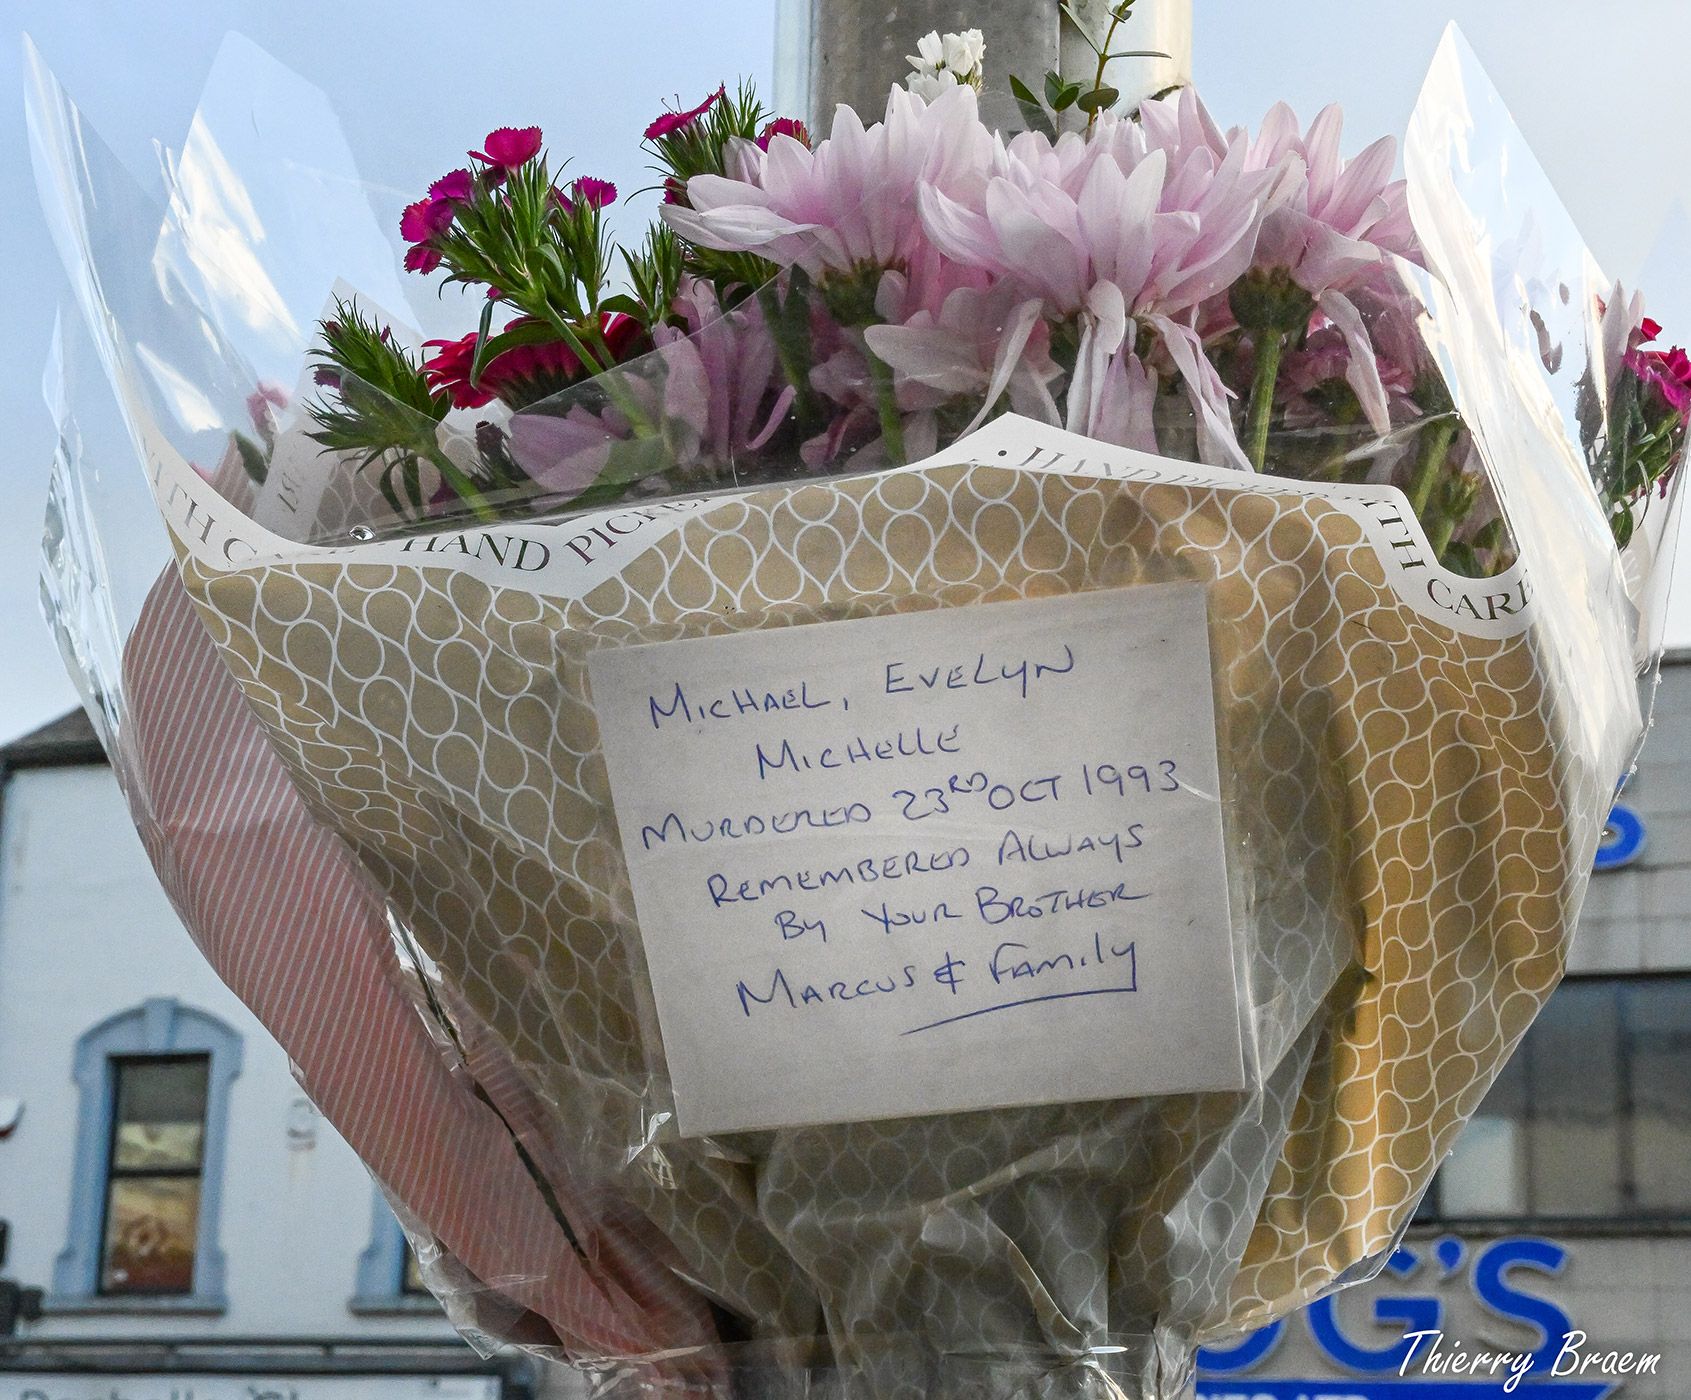 • HAND PICKED WITH CARE
WITH CARE • HAND PICKED
MICHAEL, EVELYN
MICHELLE
MURDERED 23RD OCT 1993
REMEMBERED ALWAYS
BY YOUR BROTHER
MARCUS & FAMILY
G'S
Thierry Braem